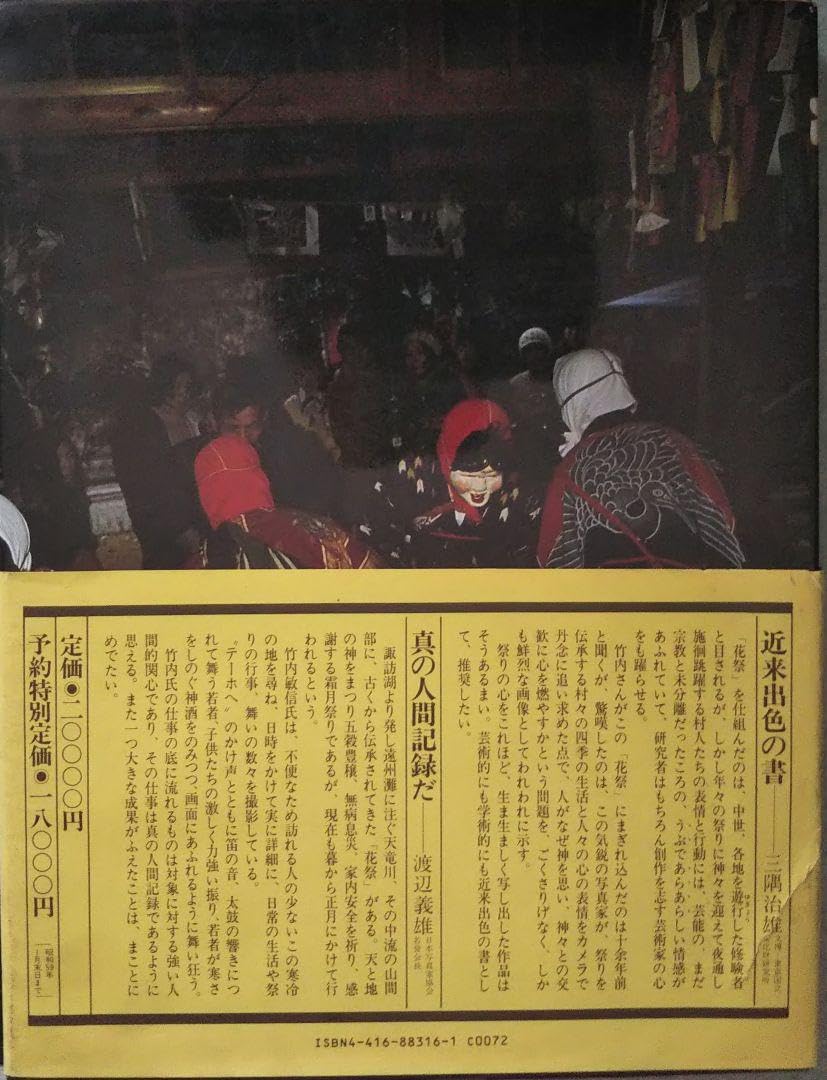 近来出色の書――三隅治雄
「花祭」を仕組んだのは、中世、各地を遊行した修験者
ゆぎょう
と目されるが、しかし年々の祭りに神々を迎えて夜通し
施徊跳躍する村人たちの表情と行動には、芸能の、まだ
宗教と未分離だったころの、うぶであらあらしい情感が
あふれていて、研究者はもちろん創作を志す芸術家の心
をも躍らせる。
竹内さんがこの「花祭」にまぎれ込んだのは十余年前
と聞くが、驚嘆したのは、この気鋭の写真家が、祭りを
伝承する村々の四季の生活と人々の心の表情をカメラで
丹念に追い求めた点で、人がなぜ神を思い、神々との交
歓に心を燃やすかという問題を、ごくさりげなく、しか
も鮮烈な画像としてわれわれに示す。
祭りの心をこれほど、生ま生ましく写し出した作品は
そうあるまい。芸術的にも学術的にも近来出色の書とし
て、推奨したい。
真の人間記録だ――渡辺義雄
日本写真家協会
名誉会長
諏訪湖より発し遠州灘に注ぐ天竜川、その中流の山間
部に、古くから伝承されてきた「花祭」がある。天と地
の神をまつり五穀豊穣、無病息災、家内安全を祈り、感
謝する霜月祭りであるが、現在も暮から正月にかけて行
われるという。
竹内敏信氏は、不便なため訪れる人の少ないこの寒冷
の地を尋ね、日時をかけて実に詳細に、日常の生活や祭
りの行事、舞いの数々を撮影している。
〝テーホヘ〟のかけ声とともに笛の音、太鼓の響きにつ
れて舞う若者、子供たちの激しく力強い振り、若者が寒さ
をしのぐ神酒をのみつつ、画面にあふれるように舞い狂う。
竹内氏の仕事の底に流れるものは対象に対する強い人
間的関心であり、その仕事は真の人間記録であるように
思える。また一つ大きな成果がふえたことは、まことに
めでたい。
定価●二〇〇〇〇円
予約特別定価●一八〇〇〇円
昭和59年
1月末日まで
ISBN4-416-88316-1 C0072